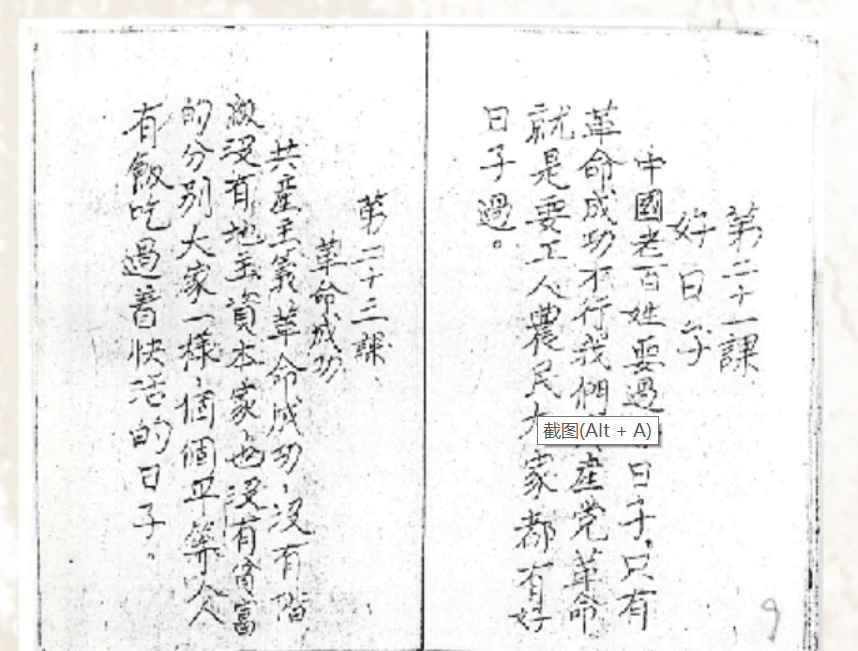 第二十一課
好日子
中國老百姓要過日子,只有
革命成功才行我們產党革命
就是要工人農民大家都有好
日子過。
第二十三課
革命成功
共產主義革命成功,沒有階
級沒有地主資本家也沒有貧富
的分別大家一樣,個個平等人人
有飯吃過着快活的日子。
9
截图(Alt + A)